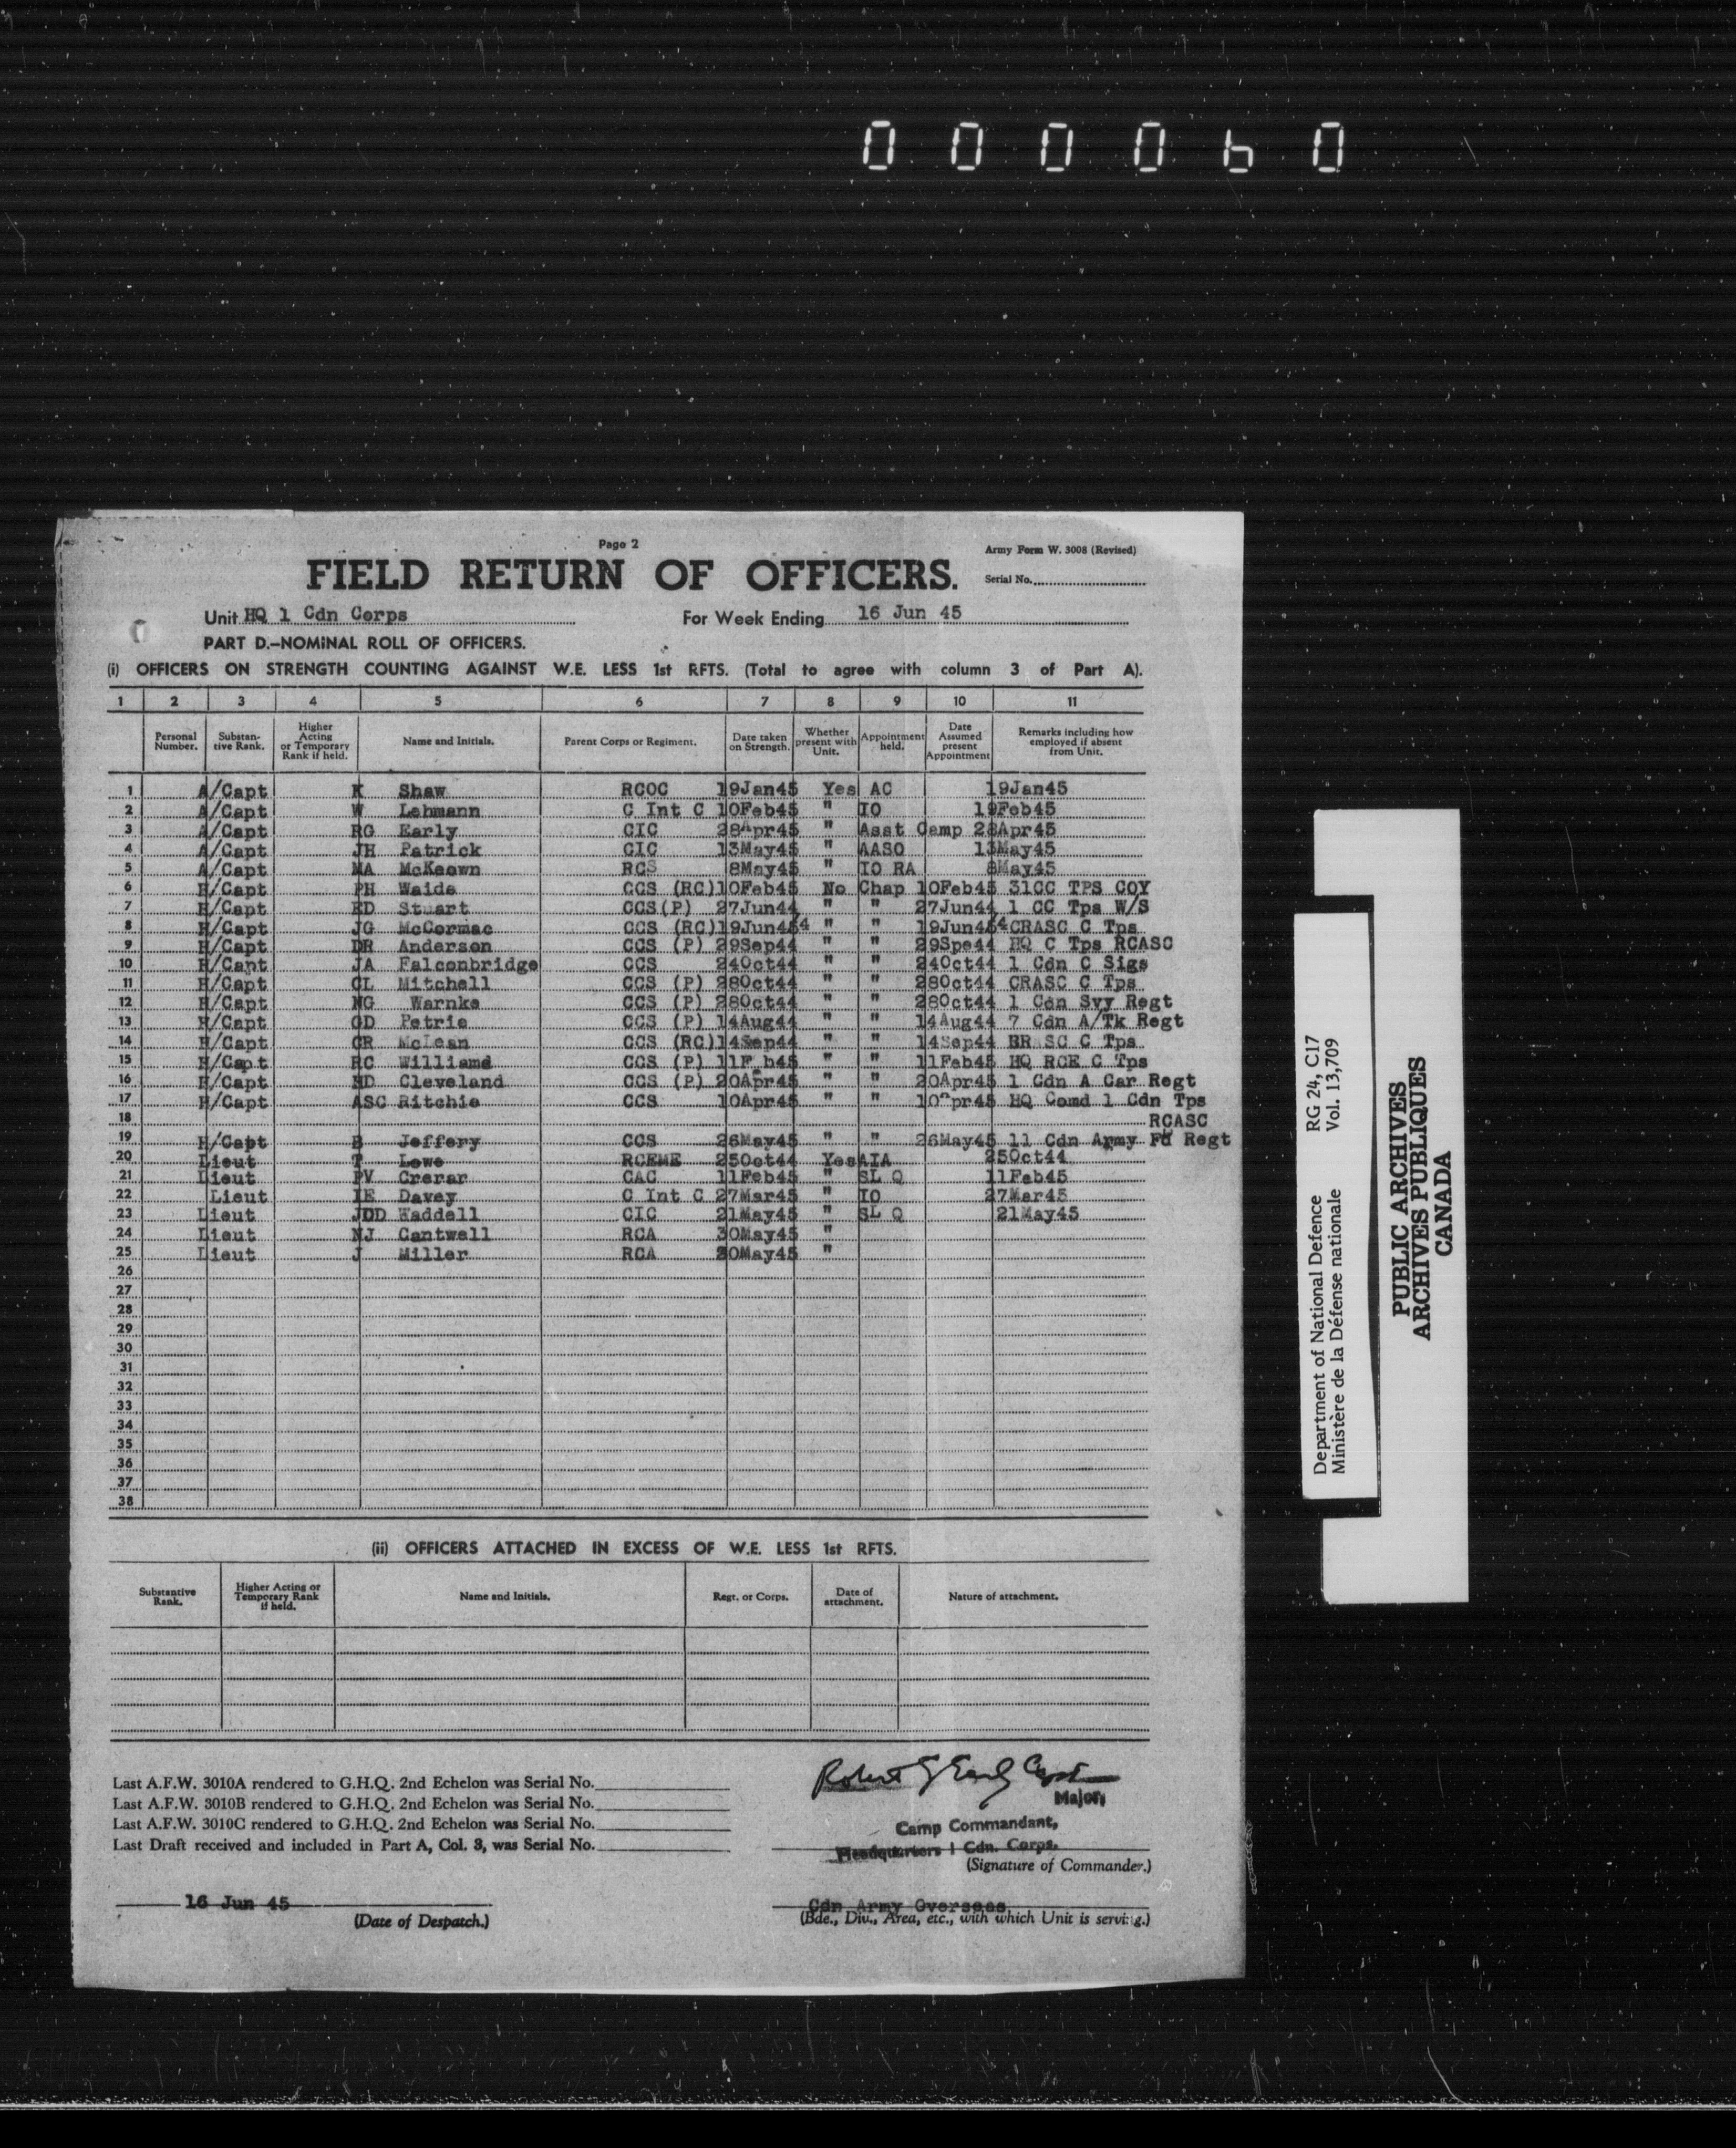 0 0 0 0 6 0
Page 2
Army Form W. 3008 (Revised)
FIELD RETURN OF OFFICERS.
Serial No.
Unit HQ 1 Cdn Corps For Week Ending 16 Jun 45
PART D.—NOMINAL ROLL OF OFFICERS.
(i) OFFICERS ON STRENGTH COUNTING AGAINST W.E. LESS 1st RFTS. (Total to agree with column 3 of Part A).
1 2 3 4 5 6 7 8 9 10 11
Personal Number. Substantive Rank. Higher Acting or Temporary Rank if held. Name and Initials. Parent Corps or Regiment. Date taken on Strength. Whether present with Unit. Appointment held. Date Assumed present Appointment Remarks including how employed if absent from Unit.
1 A/Capt K Shaw RCOC 19Jan45 Yes AC 19Jan45
2 A/Capt W Lehmann C Int C 10Feb45 " IO 19Feb45
3 A/Capt RG Early CIC 28Apr45 " Asst Camp 28Apr45
4 A/Capt JH Patrick CIC 13May45 " AASO 13May45
5 A/Capt MA McKeown RCS 8May45 " IO RA 8May45
6 H/Capt PH Waide CCS (RC) 10Feb45 No Chap 10Feb45 31CC TPS COY
7 H/Capt ED Stuart CCS(P) 27Jun44 " " 27Jun44 1 CC Tps W/S
8 H/Capt JG McCormac CCS (RC) 19Jun454 " " 19Jun454 CRASC C Tps
9 H/Capt DR Anderson CCS (P) 29Sep44 " " 29Spe44 HQ C Tps RCASC
10 H/Capt JA Falconbridge CCS 24Oct44 " " 24Oct44 1 Cdn C Sigs
11 H/Capt CL Mitchell CCS (P) 28Oct44 " " 28Oct44 CRASC C Tps
12 H/Capt NG Warnke CCS (P) 28Oct44 " " 28Oct44 1 Cdn Svy Regt
13 H/Capt GD Petrie CCS (P) 14Aug44 " " 14Aug44 7 Cdn A/Tk Regt
14 H/Capt CR McLean CCS (RC) 14Sep44 " " 14Sep44 BRASC C Tps
15 H/Capt RC Williamd CCS (P) 11Feb45 " " 11Feb45 HQ RCE C Tps
16 H/Capt HD Cleveland CCS (P) 20Apr45 " " 20Apr45 1 Cdn A Car Regt
17 H/Capt ASC Ritchie CCS 10Apr45 " " 10Apr45 HQ Comd 1 Cdn Tps
18 RCASC
19 H/Capt B Jeffery CCS 26May45 " " 26May45 11 Cdn Army Fd Regt
20 Lieut T Lowe RCEME 25Oct44 Yes AIA 25Oct44
21 Lieut PV Crerar CAC 11Feb45 " SL Q 11Feb45
22 Lieut IE Davey C Int C 27Mar45 " IO 27Mar45
23 Lieut JDD Waddell CIC 21May45 " SL Q 21May45
24 Lieut NJ Cantwell RCA 30May45 "
25 Lieut J Miller RCA 30May45 "
26
27
28
29
30
31
32
33
34
35
36
37
38
(ii) OFFICERS ATTACHED IN EXCESS OF W.E. LESS 1st RFTS.
Substantive Rank. Higher Acting or Temporary Rank if held. Name and Initials. Regt. or Corps. Date of attachment. Nature of attachment.
Last A.F.W. 3010A rendered to G.H.Q. 2nd Echelon was Serial No.
Last A.F.W. 3010B rendered to G.H.Q. 2nd Echelon was Serial No.
Last A.F.W. 3010C rendered to G.H.Q. 2nd Echelon was Serial No.
Last Draft received and included in Part A, Col. 3, was Serial No.
Robert G Early Capt
Major,
Camp Commandant,
Headquarters 1 Cdn. Corps.
(Signature of Commander.)
16 Jun 45
(Date of Despatch.)
Cdn Army Overseas
(Bde., Div., Area, etc., with which Unit is serving.)
Department of National Defence RG 24, C17
Ministère de la Défense nationale Vol. 13,709
PUBLIC ARCHIVES
ARCHIVES PUBLIQUES
CANADA